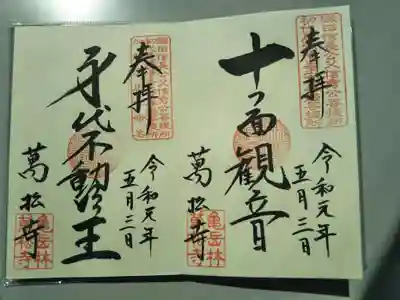 奉拝
十一面観音
令和元年
五月三日
萬松寺
亀岳林
萬松寺
奉拝
身代不動明王
令和元年
五月三日
萬松寺
亀岳林
萬松寺